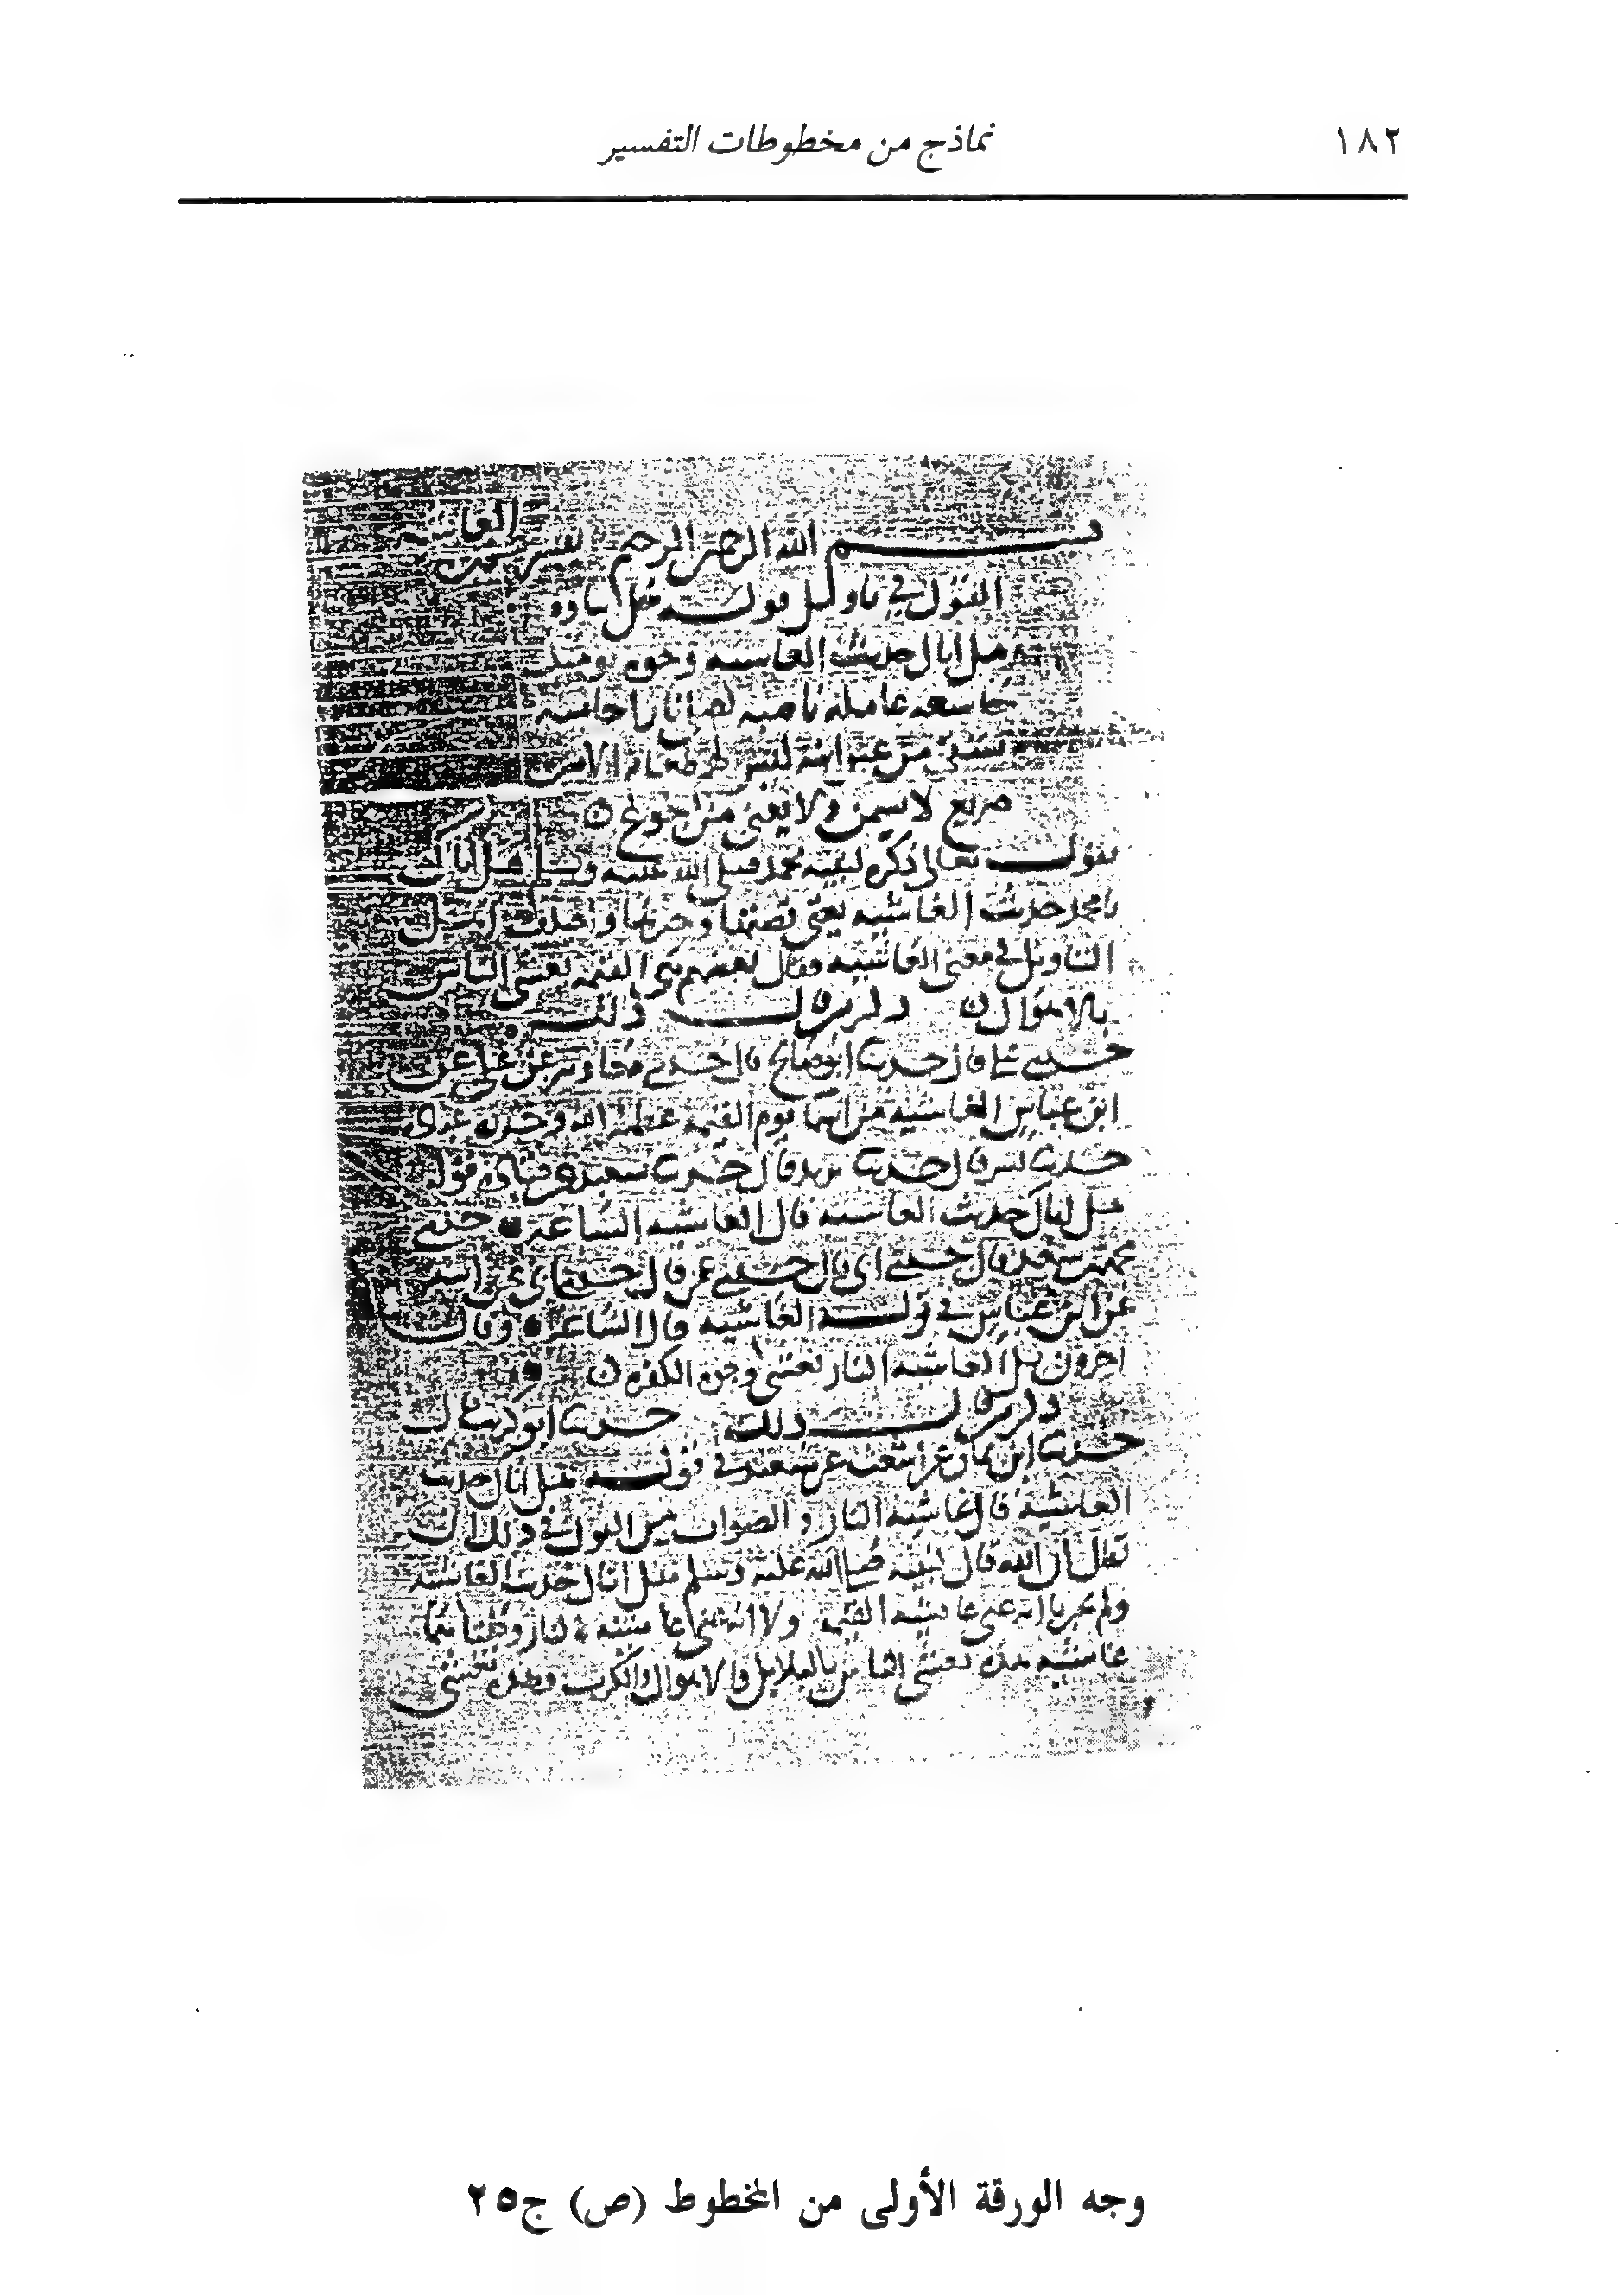 ١٨٢ نماذج من مخطوطات التفسير
بسم الله الرحمن الرحيم تفسير الغاشية
القول في تاويل قوله
هل اتاك حديث الغاشيه وجوه يوميذ
خاشعه عامله ناصبه تصلى نارا حاميه
تسقى من عين انيه ليس لهم طعام الا من
ضريع لا يسمن ولا يغنى من جوع
يقول تعالى ذكره لنبيه محمد صلى الله عليه وسلم هل اتاك
يا محمد حديث الغاشيه يعنى قصتها وخبرها واختلف اهل
التاويل في معنى الغاشيه فقال بعضهم هى القيمه تغشى الناس
بالاهوال ذكر من قال ذلك
حدثنى على قال حدثنا ابو صالح قال حدثنى معاويه عن على عن
ابن عباس الغاشيه من اسما يوم القيمه عظمه الله وحذره عباده
حدثنا بشر قال حدثنا يزيد قال حدثنا سعيد عن قتاده قوله
هل اتاك حديث الغاشيه قال الغاشيه الساعه حدثنى
محمد بن سعد قال حدثنى ابى قال حدثنى عمى قال حدثنى ابى عن ابيه
عن ابن عباس في قوله الغاشيه قال الساعه وقال
اخرون بل الغاشيه النار تغشى وجوه الكفره
ذكر من قال ذلك حدثنا ابو كريب قال
حدثنا ابن يمان عن اشعث عن سعيد في قوله هل اتاك حديث
الغاشيه قال غاشيه النار والصواب من القول في ذلك ان
يقال ان الله قال لنبيه صلى الله عليه وسلم هل اتاك حديث الغاشيه
ولم يخبرنا انه عنى غاشيه القيمه ولا انه عنى غاشيه النار وكلتاهما
غاشيه هذه تغشى الناس بالبلايل والاهوال والكرب وهذه تغشى
وجه الورقة الأولى من المخطوط (ص) ج٢٥